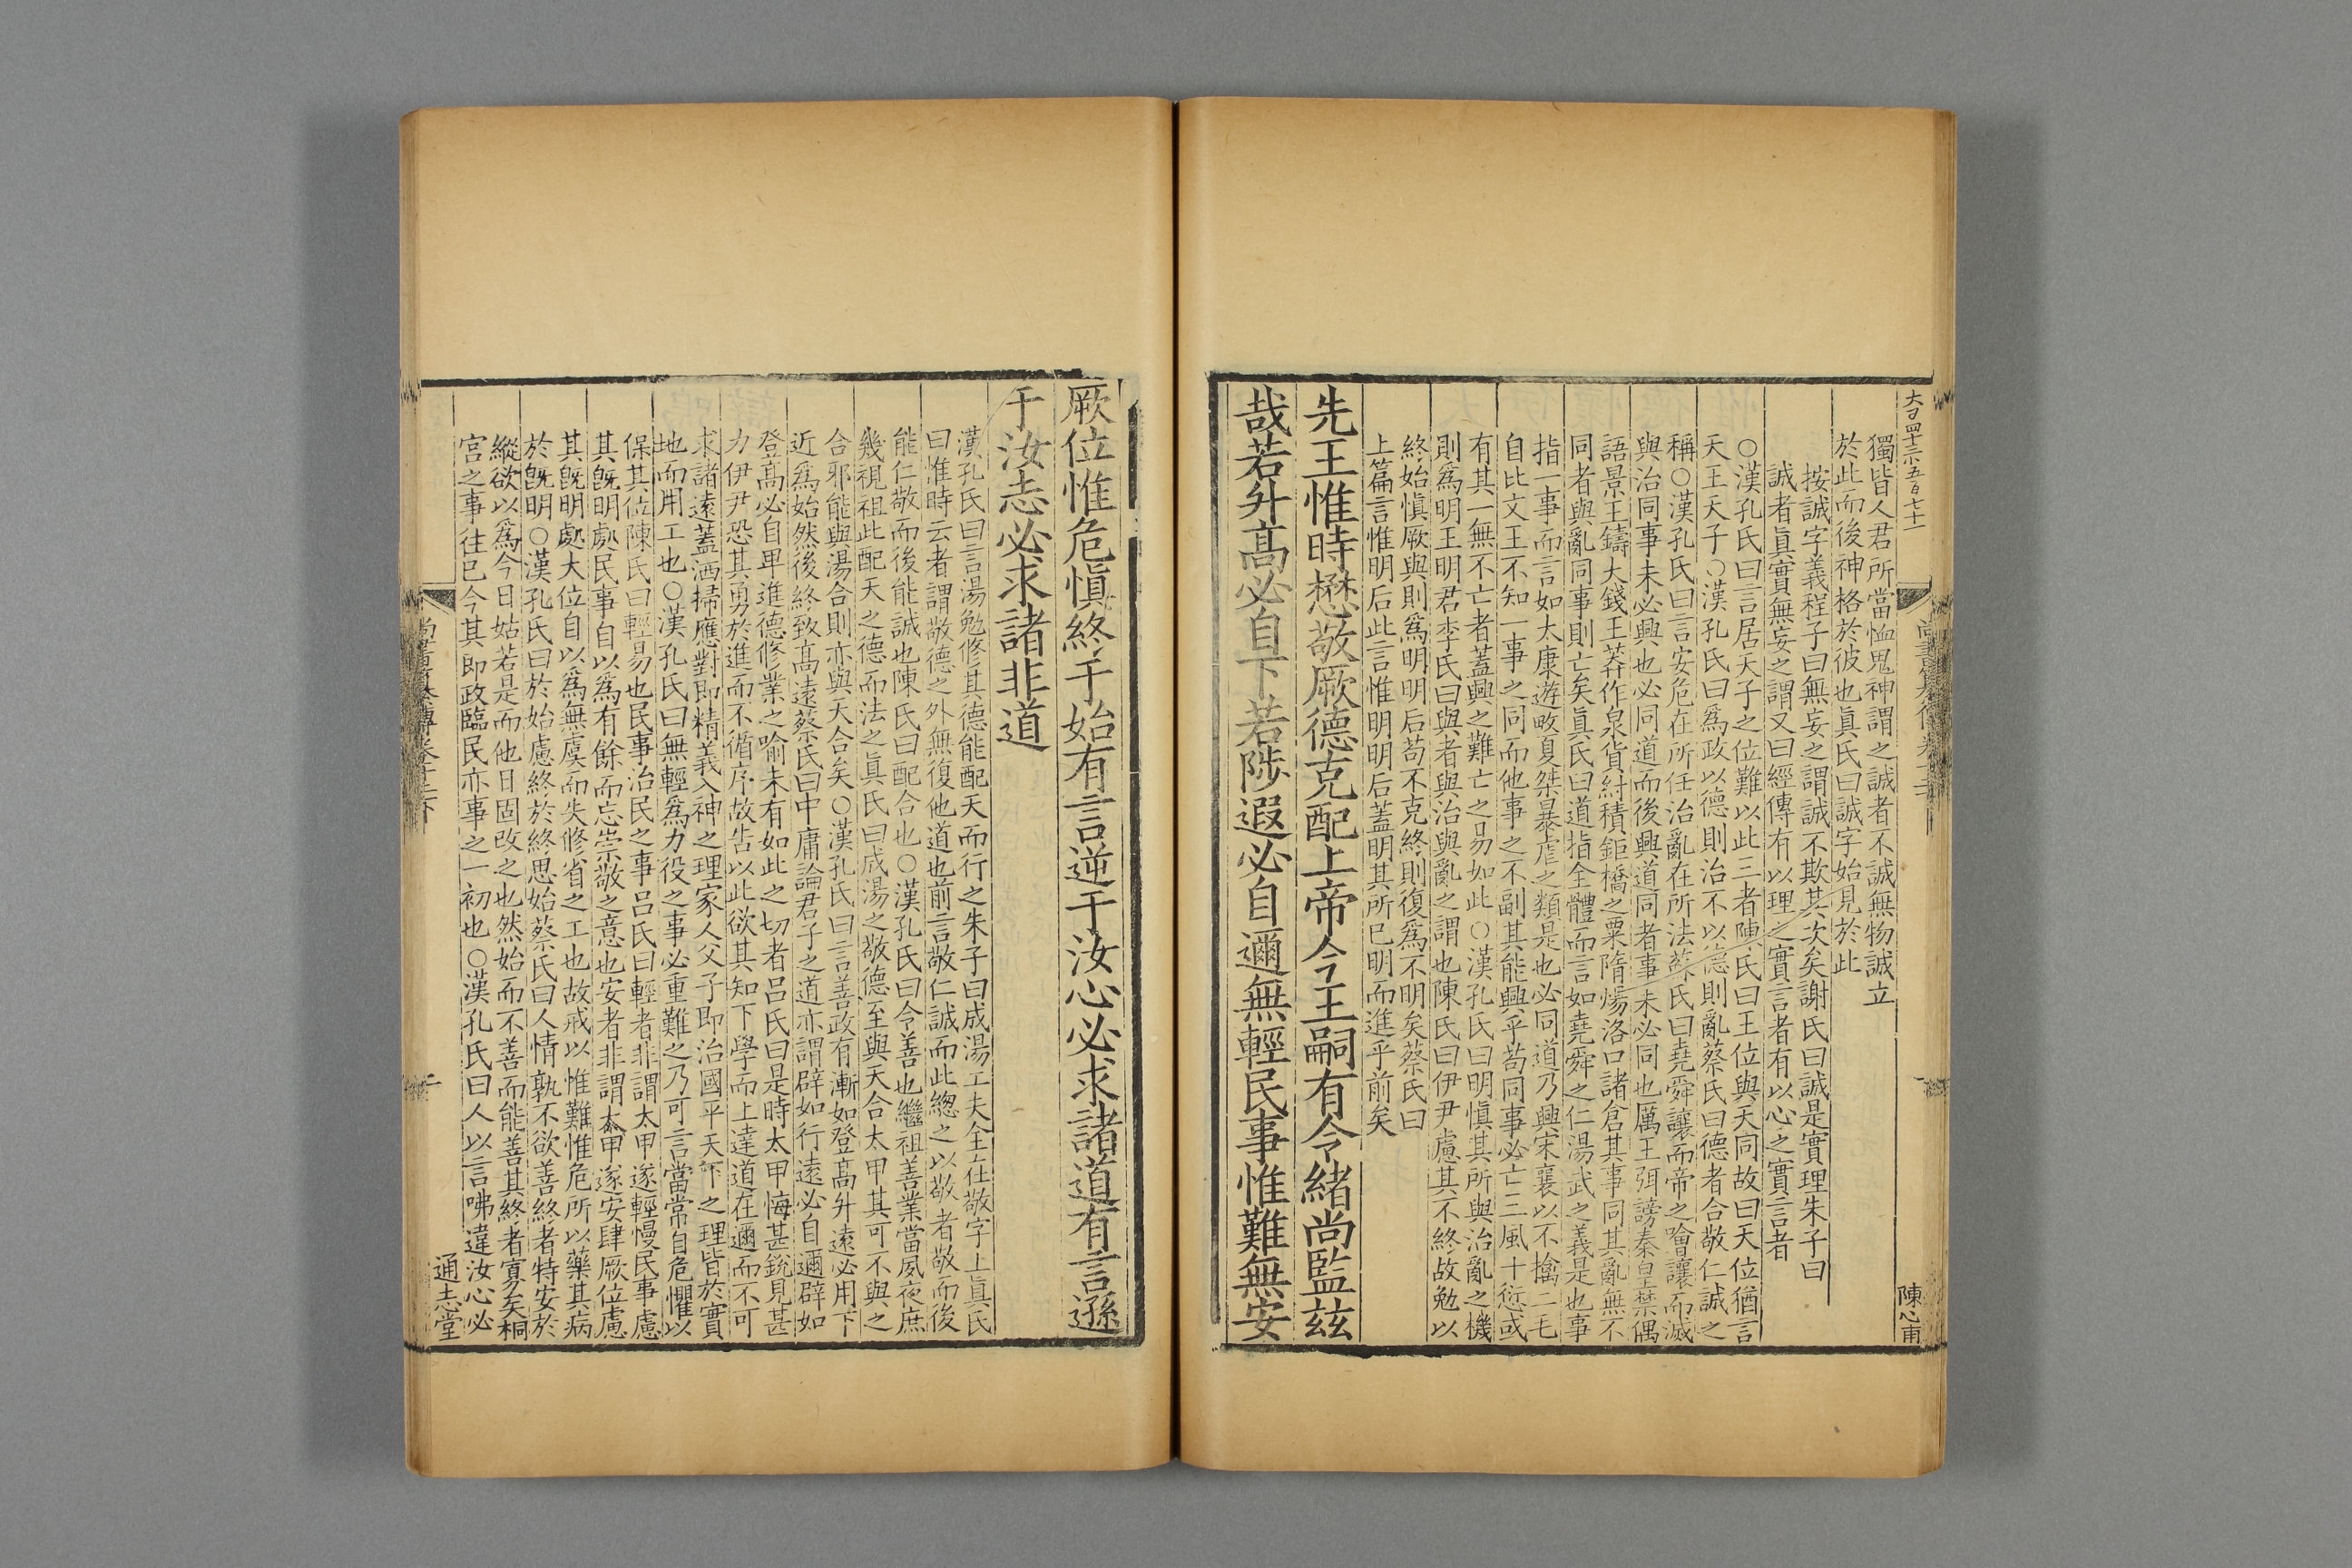 獨皆人君所當恤鬼神謂之誠者不誠無物誠立
於此而後神格於彼也眞氏曰誠字始見於此
按誠字義程子曰無妄之謂誠不欺其次矣謝氏曰誠是實理朱子曰
誠者眞實無妄之謂又曰經傳有以理之實言者有以心之實言者
○漢孔氏曰言居天子之位難以此三者陳氏曰王位與天同故曰天位猶言
天王天子○漢孔氏曰爲政以德則治不以德則亂蔡氏曰德者合敬仁誠之
稱○漢孔氏曰言安危在所任治亂在所法蘇氏曰堯舜讓而帝之噲讓而滅
與治同事未必興也必同道而後興道同者事未必同也厲王弭謗秦皇禁偶
語景王鑄大錢王莽作泉貨紂積鉅橋之粟隋煬洛口諸倉其事同其亂無不
同者與亂同事則亡矣眞氏曰道指全體而言如堯舜之仁湯武之義是也事
指一事而言如太康遊畋夏桀暴虐之類是也必同道乃興宋襄以不擒二毛
自比文王不知一事之同而他事之不副其能興乎苟同事必亡三風十愆或
有其一無不亡者蓋興之難亡之易如此○漢孔氏曰明愼其所與治亂之機
則爲明王明君李氏曰與者與治與亂之謂也陳氏曰伊尹慮其不終故勉以
終始愼厥與則爲明明后苟不克終則復爲不明矣蔡氏曰
上篇言惟明后此言惟明明后蓋明其所已明而進乎前矣
先王惟時懋敬厥德克配上帝今王嗣有令緒尚監玆
哉若升高必自下若陟遐必自邇無輕民事惟難無安
陳心甫
厥位惟危愼終于始有言逆于汝心必求諸道有言遜
于汝志必求諸非道
漢孔氏曰言湯勉修其德能配天而行之朱子曰成湯工夫全在敬字上眞氏
曰惟時云者謂敬德之外無復他道也前言敬仁誠而此總之以敬者敬而後
能仁敬而後能誠也陳氏曰配合也○漢孔氏曰令善也繼祖善業當夙夜庶
幾視祖此配天之德而法之眞氏曰成湯之敬德至與天合太甲其可不與之
合邪能與湯合則亦與天合矣○漢孔氏曰言善政有漸如登高升遠必用下
近爲始然後終致高遠蔡氏曰中庸論君子之道亦謂辟如行遠必自邇辟如
登高必自卑進德修業之喻未有如此之切者呂氏曰是時太甲悔甚銳見甚
力伊尹恐其勇於進而不循序故告以此欲其知下學而上達道在邇而不可
求諸遠蓋洒掃應對即精義入神之理家人父子即治國平天下之理皆於實
地而用工也○漢孔氏曰無輕爲力役之事必重難之乃可言當常自危懼以
保其位陳氏曰輕易也民事治民之事呂氏曰輕者非謂太甲遂輕慢民事慮
其旣明處民事自以爲有餘而忘崇敬之意也安者非謂太甲遂安肆厥位慮
其旣明處大位自以爲無虞而失修省之工也故戒以惟難惟危所以藥其病
於旣明○漢孔氏曰於始慮終於終思始蔡氏曰人情孰不欲善終者特安於
縱欲以爲今日姑若是而他日固改之也然始而不善而能善其終者寡矣桐
宮之事往已今其即政臨民亦事之一初也○漢孔氏曰人以言咈違汝心必
通志堂